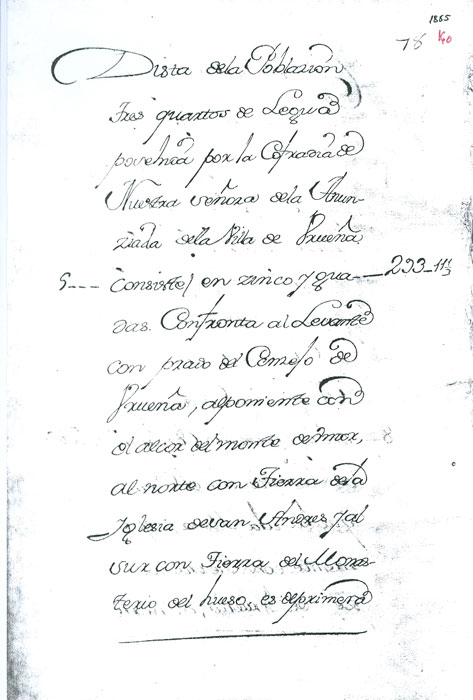 1865
78 40
Dista dela Poblazion
tres quartos de Legua
posehida por la Cofradia de
Nuestra señora dela Anun-
ziada dela Villa de Urueña
5--- Consiste en zinco Yguadas 233-11⅓
das. Confronta al Levante
con prado del Conzejo de
Urueña, alponiente con
el alcor del monte
al norte con Tierra dela
Yglesia desan Andres Yal
sur con Tierra del Monas-
terio del hueso, es deprimera